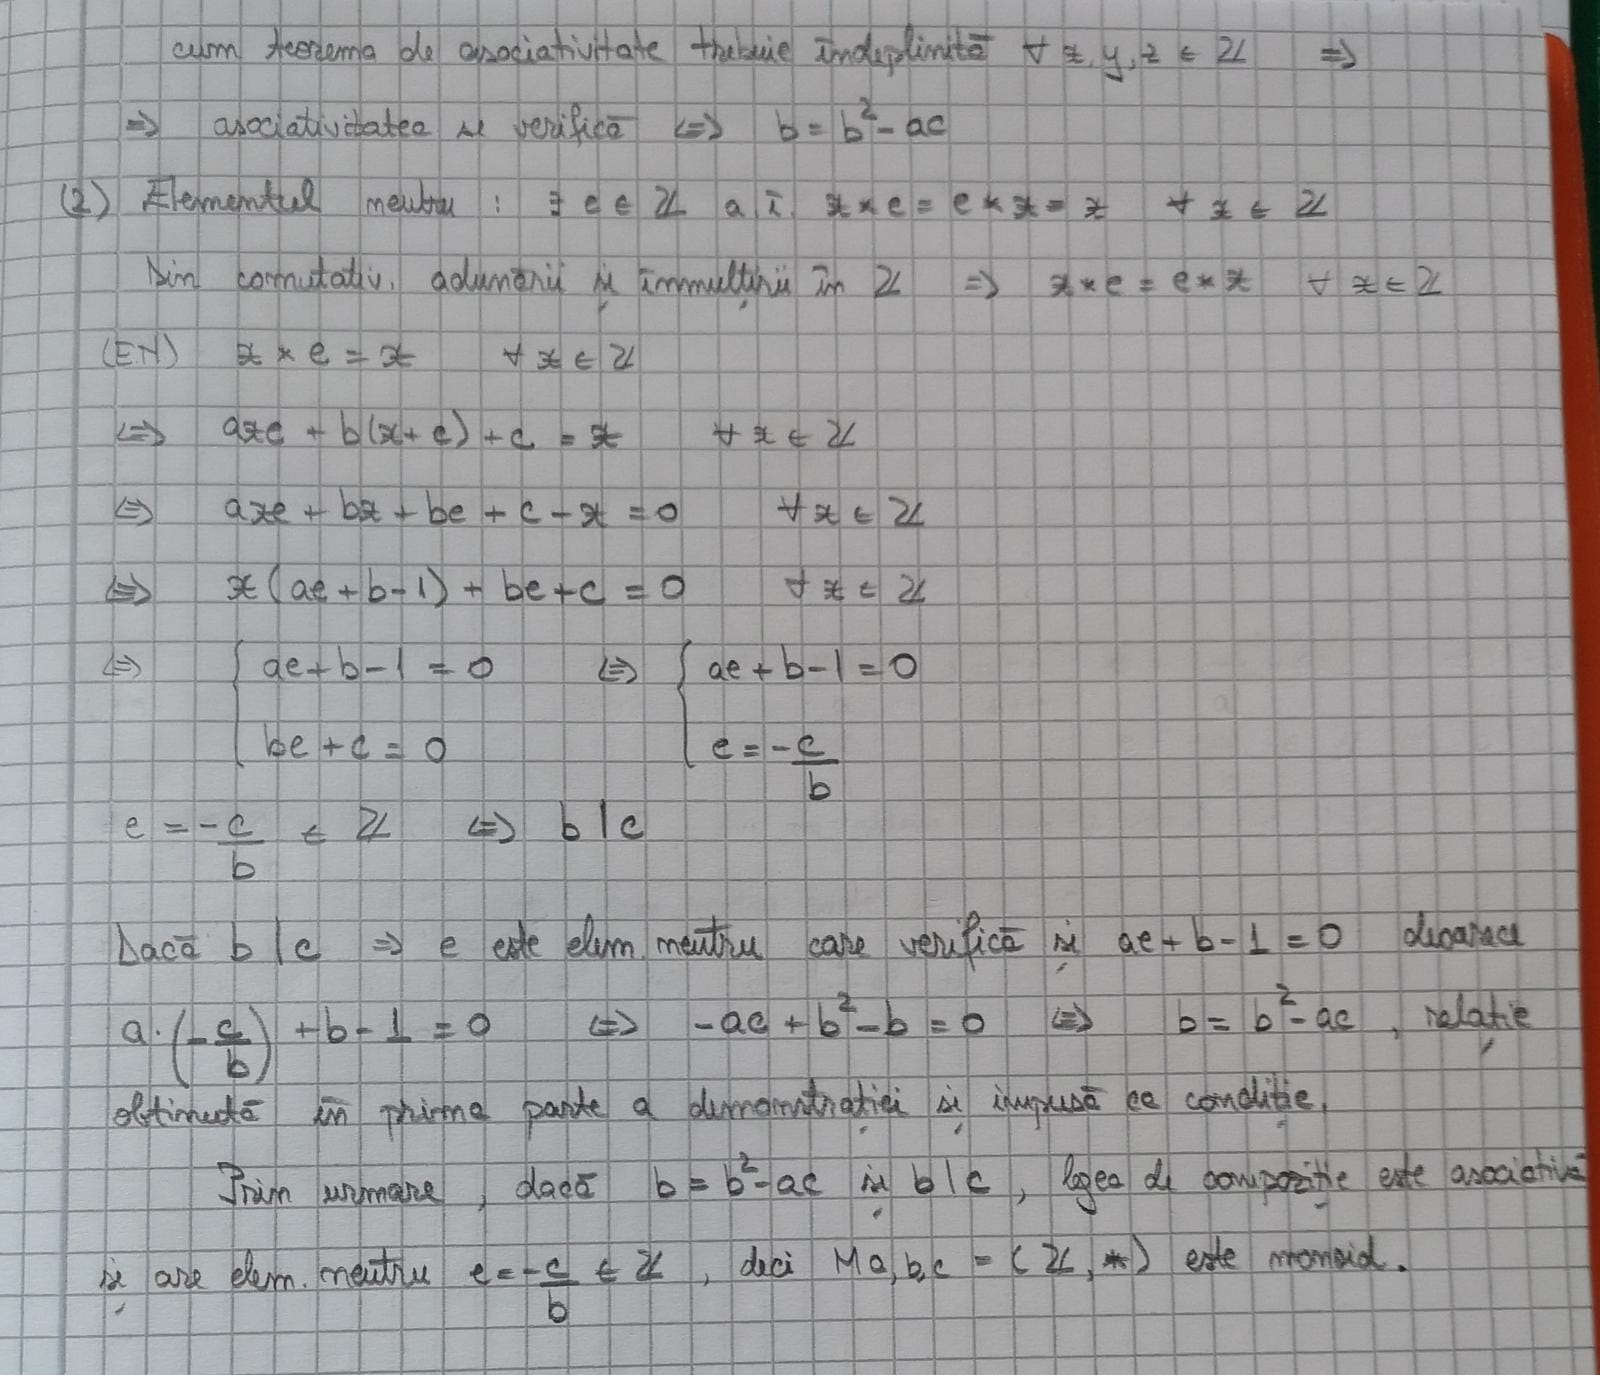 cum teorema de asociativitate trebuie îndeplinită ∀ x, y, z ∈ ℤ ⇒
⇒ asociativitatea se verifică ⇔ b = b² - ac
(2) Elementul neutru : ∃ e ∈ ℤ a.î. x * e = e * x = x ∀ x ∈ ℤ
Din comutativ. adunării și înmulțirii în ℤ ⇒ x * e = e * x ∀ x ∈ ℤ
(EN) x * e = x ∀ x ∈ ℤ
⇔ axe + b(x + e) + c = x ∀ x ∈ ℤ
⇔ axe + bx + be + c - x = 0 ∀ x ∈ ℤ
⇔ x(ae + b - 1) + be + c = 0 ∀ x ∈ ℤ
⇔ { ae + b - 1 = 0 ⇔ { ae + b - 1 = 0
be + c = 0 e = -c/b
e = -c/b ∈ ℤ ⇔ b | c
Dacă b | c ⇒ e este elem. neutru care verifică și ae + b - 1 = 0 deoarece
a · (-c/b) + b - 1 = 0 ⇔ -ac + b² - b = 0 ⇔ b = b² - ac , relație
obținută în prima parte a demonstrației și impusă ca condiție.
Prin urmare , dacă b = b² - ac și b | c , legea de compoziție este asociativă
și are elem. neutru e = -c/b ∈ ℤ , deci Ma,b,c = (ℤ, *) este monoid.